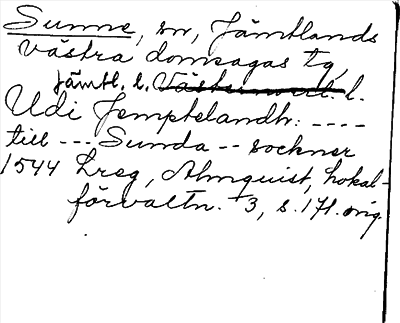 Sunne, sn, Jämtlands
västra domsagas tg,
jämtl. l. l.
Udi Jemptelandh: ----
till --- Sunda -- sockner
1544 Lreg, Almquist, Lokal-
förvaltn. 3, s. 171. orig.